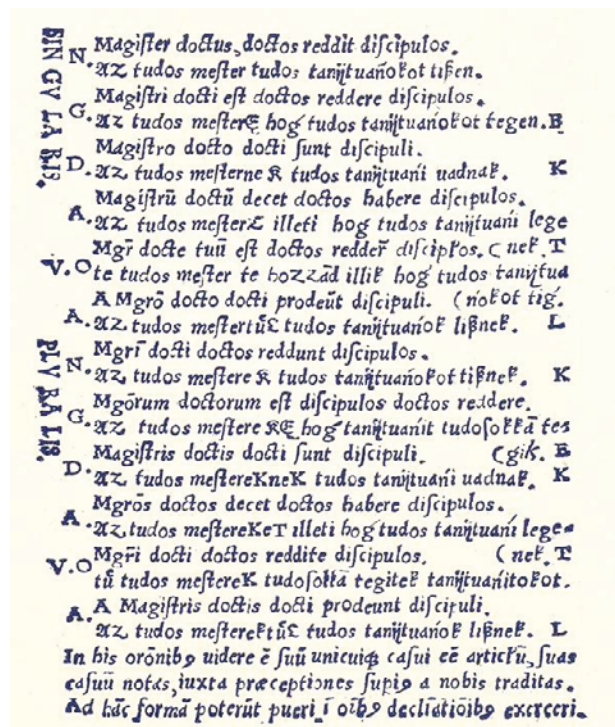 SINGVLARIS.
N. Magiſter doctus, doctos reddit diſcipulos.
Az tudos meſter tudos tanijtuańokot tißen.
G. Magiſtri docti eſt doctos reddere diſcipulos.
Az tudos meſterE hoǵ tudos tanijtuańokot tegen. E
D. Magiſtro docto docti ſunt diſcipuli.
Az tudos meſterne K tudos tanijtuańi uadnak. K
A. Magiſtrū doctū decet doctos habere diſcipulos.
Az tudos meſterT illeti hoǵ tudos tanijtuańi lege
V. O Mgr̄ docte tuū eſt doctos redder̄ diſcipłos. (nek. T
te tudos meſter te hozzād illik hoǵ tudos tanijtua
A. A Mgrō docto docti prodeūt diſcipuli. (ńokot tiǵ.
Az tudos meſtertűL tudos tanijtuańok lißnek. L
PLVRALIS.
N. Mgrī docti doctos reddunt diſcipulos.
Az tudos meſtere K tudos tanijtuańokot tißnek. K
G. Mgōrum doctorum eſt diſcipulos doctos reddere.
Az tudos meſtere KE hoǵ tanijtuańit tudoſokkā teǵ
D. Magiſtris doctis docti ſunt diſcipuli. (gik. E
Az tudos meſtereKneK tudos tanijtuańi uadnak. K
A. Mgrōs doctos decet doctos habere diſcipulos.
Az tudos meſtereKeT illeti hoǵ tudos tanijtuańi lege=
V. O Mgr̄i docti doctos reddite diſcipulos. (nek. T
tű tudos meſtereK tudoſokkā tegitek tanijtuańitokot.
A. A Magiſtris doctis docti prodeunt diſcipuli.
Az tudos meſterektűL tudos tanijtuańok lißnek. L
In his orōnibꝰ uidere ē ſuū unicuiqꝫ caſui eē artickū, ſuas
caſuū notas, iuxta præceptiones ſupiꝰ a nobis traditas.
Ad hāc formā poterūt pueri ī oībꝰ declīatiōibꝰ exerceri.